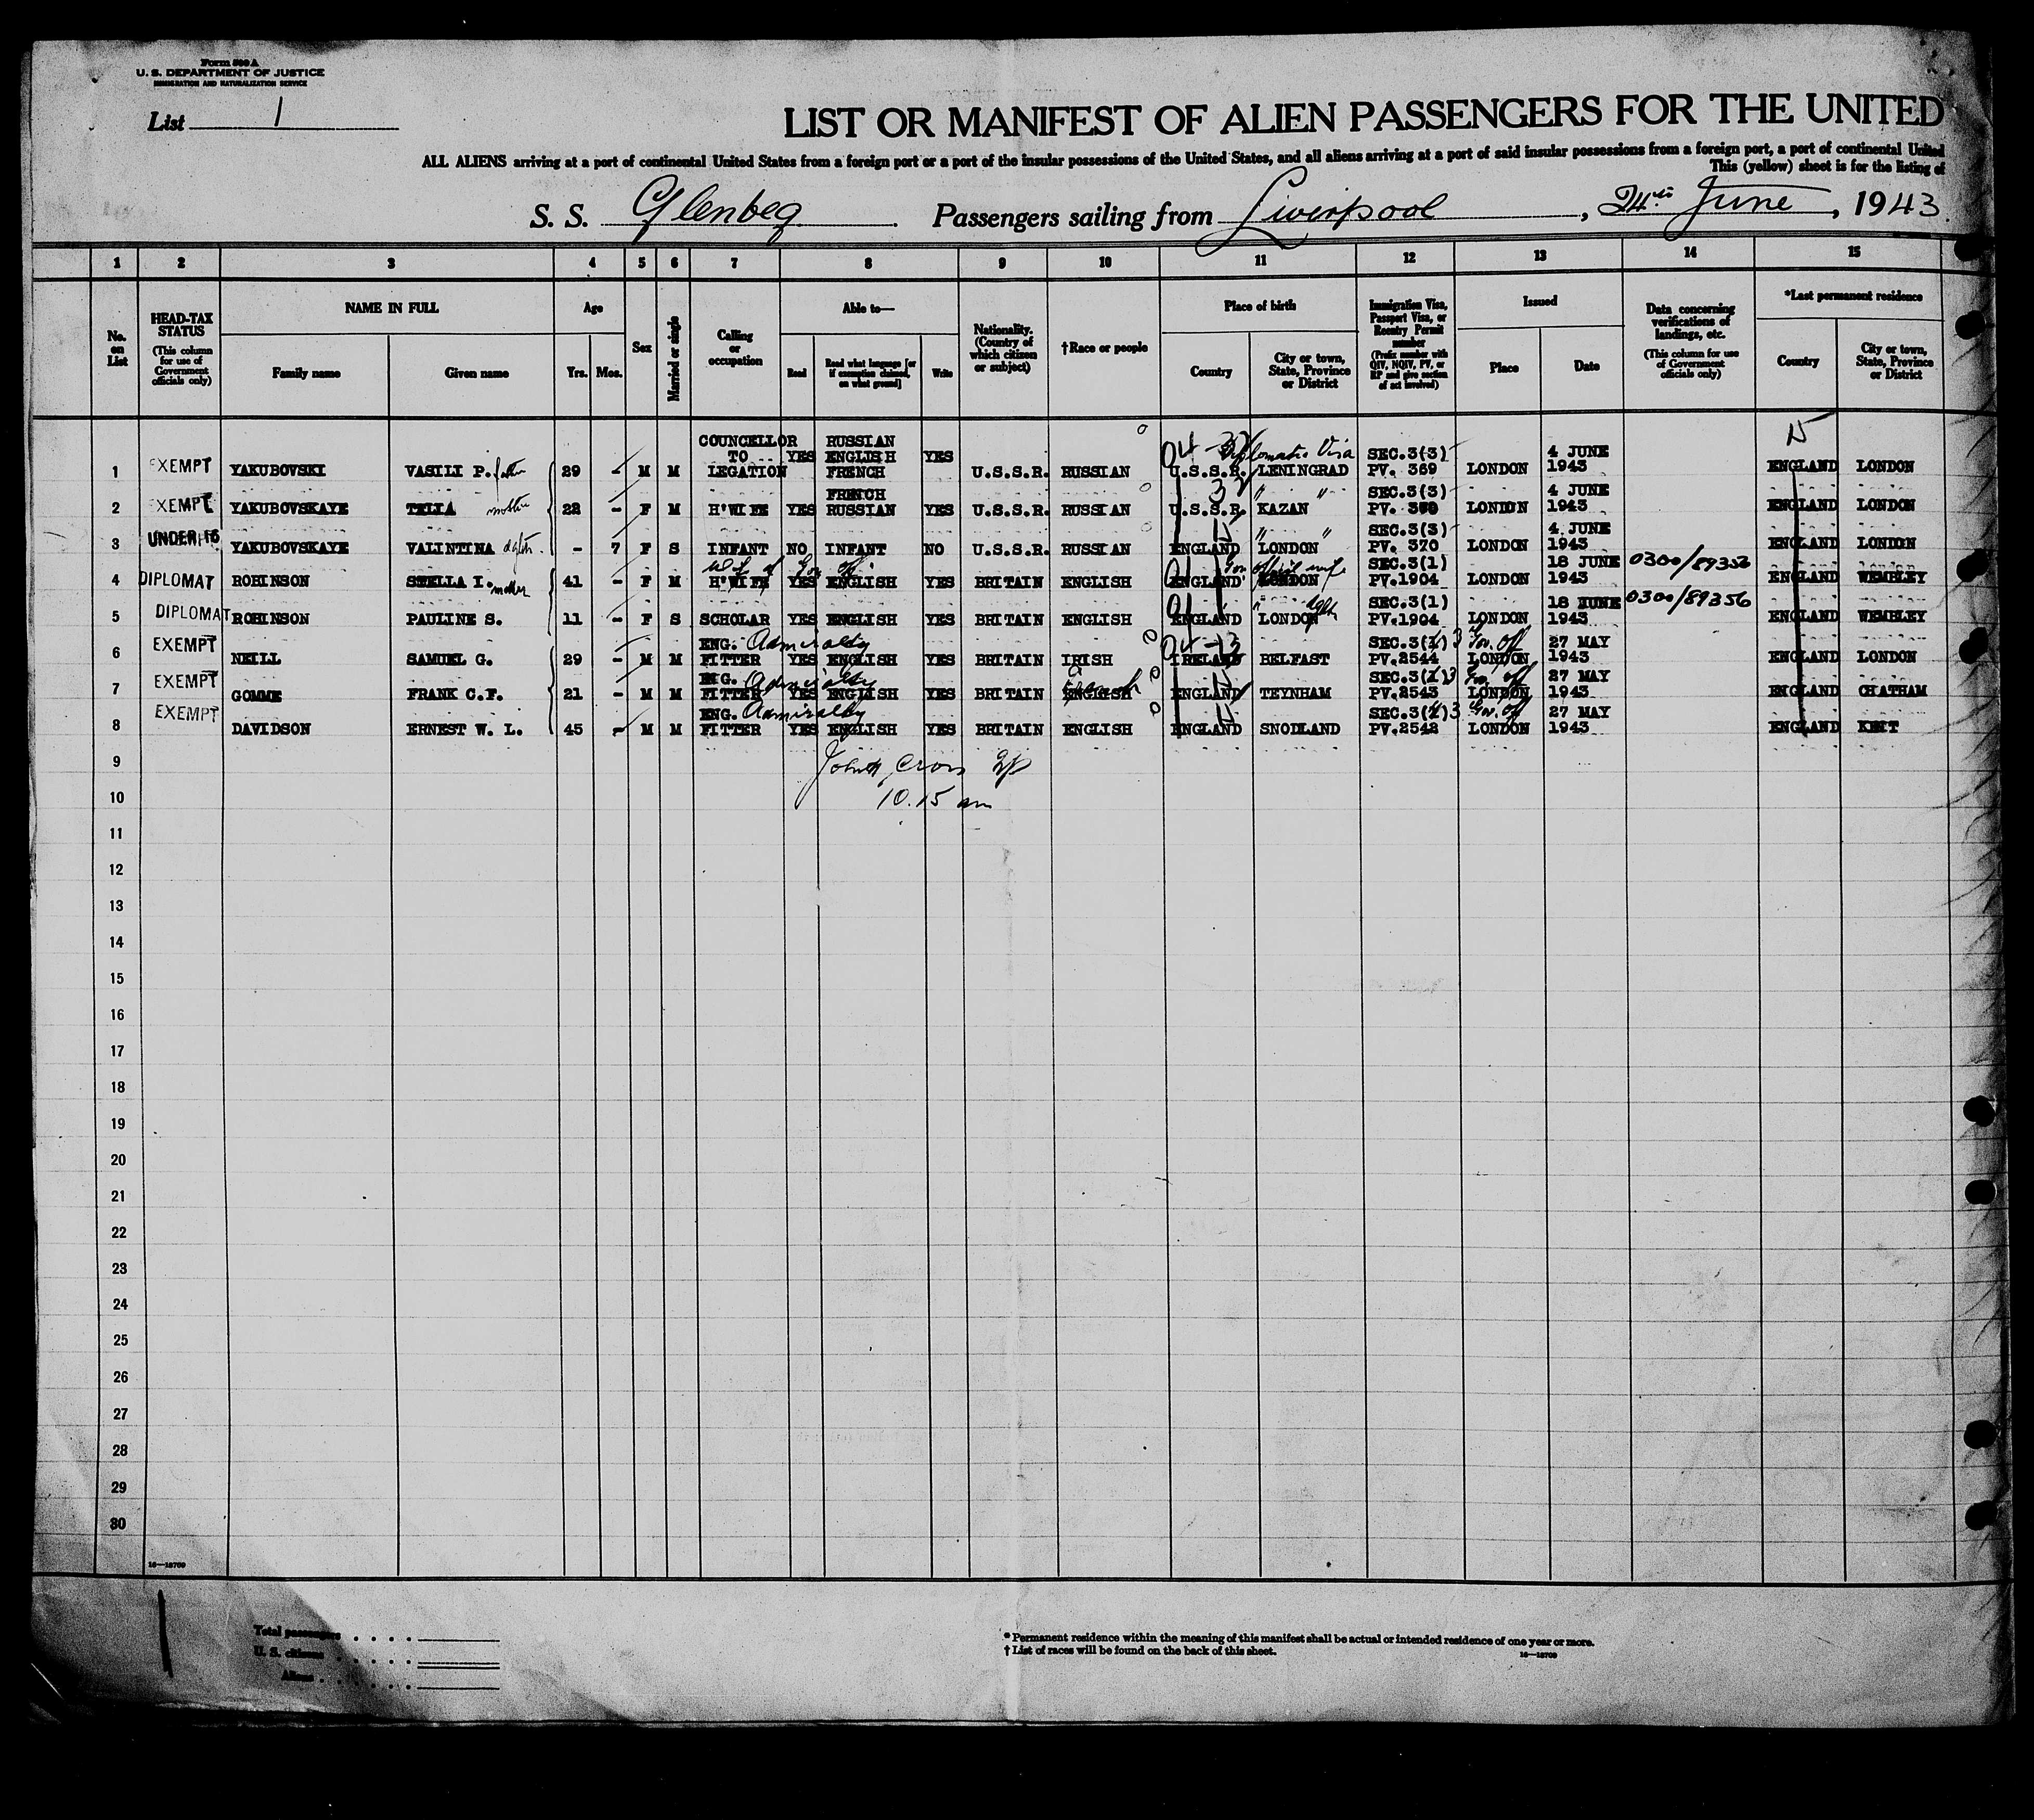 Form 500 A
U. S. DEPARTMENT OF JUSTICE
IMMIGRATION AND NATURALIZATION SERVICE
List 1
LIST OR MANIFEST OF ALIEN PASSENGERS FOR THE UNITED
ALL ALIENS arriving at a port of continental United States from a foreign port or a port of the insular possessions of the United States, and all aliens arriving at a port of said insular possessions from a foreign port, a port of continental United
This (yellow) sheet is for the listing of
S. S. Glenbeg Passengers sailing from Liverpool, 24th June, 1943
1 2 3 4 5 6 7 8 9 10 11 12 13 14 15
No. on List
HEAD-TAX STATUS (This column for use of Government officials only)
NAME IN FULL
Family name Given name
Age
Yrs. Mos.
Sex
Married or single
Calling or occupation
Able to—
Read Read what language [or if exemption claimed, on what ground] Write
Nationality. (Country of which citizen or subject)
†Race or people
Place of birth
Country City or town, State, Province or District
Immigration Visa, Passport Visa, or Reentry Permit number (Prefix number with QIV, NQIV, PV, or RP and give section of act involved)
Issued
Place Date
Data concerning verifications of landings, etc. (This column for use of Government officials only)
*Last permanent residence
Country City or town, State, Province or District
15
1 EXEMPT YAKUBOVSKI VASILI P. father 29 - M M COUNCELLOR TO LEGATION YES RUSSIAN ENGLISH FRENCH YES U.S.S.R. RUSSIAN 04-32 Diplomatic Visa U.S.S.R. LENINGRAD SEC.3(3) PV. 369 LONDON 4 JUNE 1943 ENGLAND LONDON
2 EXEMPT YAKUBOVSKAYE TELIA mother 22 - F M H'WIFE YES FRENCH RUSSIAN YES U.S.S.R. RUSSIAN 32 " " U.S.S.R. KAZAN SEC.3(3) PV. LONDON 4 JUNE 1943 ENGLAND LONDON
3 UNDER 16 YAKUBOVSKAYE VALINTINA dghtr. - 7 F S INFANT NO INFANT NO U.S.S.R. RUSSIAN 15 " " ENGLAND LONDON SEC.3(3) PV. 370 LONDON 4 JUNE 1943 ENGLAND LONDON
4 DIPLOMAT ROBINSON STELLA I. mother 41 - F M wife of Gov. off. H'WIFE YES ENGLISH YES BRITAIN ENGLISH Gov official wife ENGLAND LONDON SEC.3(1) PV.1904 LONDON 18 JUNE 1943 0300/89356 ENGLAND WEMBLEY
5 DIPLOMAT ROBINSON PAULINE S. 11 - F S SCHOLAR YES ENGLISH YES BRITAIN ENGLISH " dghtr ENGLAND LONDON SEC.3(1) PV.1904 LONDON 18 JUNE 1943 0300/89356 ENGLAND WEMBLEY
6 EXEMPT NEILL SAMUEL G. 29 - M M ENG. Admiralty FITTER YES ENGLISH YES BRITAIN IRISH 04-13 IRELAND BELFAST SEC.3(1) 3 Gov. off PV.2544 LONDON 27 MAY 1943 ENGLAND LONDON
7 EXEMPT GOMME FRANK C.F. 21 - M M ENG. Admiralty FITTER YES ENGLISH YES BRITAIN ENGLISH 15 ENGLAND TEYNHAM SEC.3(1) 3 Gov. off PV.2543 LONDON 27 MAY 1943 ENGLAND CHATHAM
8 EXEMPT DAVIDSON ERNEST W. L. 45 - M M ENG. Admiralty FITTER YES ENGLISH YES BRITAIN ENGLISH 15 ENGLAND SNODLAND SEC.3(1) 3 Gov. off PV.2542 LONDON 27 MAY 1943 ENGLAND KENT
9 Cross
10 10.15 am
11
12
13
14
15
16
17
18
19
20
21
22
23
24
25
26
27
28
29
30
16—18709
Total passengers
U. S. citizens
Aliens
* Permanent residence within the meaning of this manifest shall be actual or intended residence of one year or more.
† List of races will be found on the back of this sheet.
16—18709